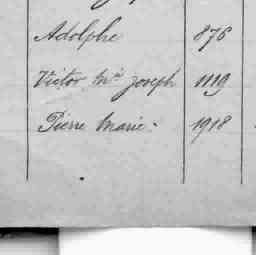 Adolphe 876
Victor Mie Joseph 1119
Pierre Marie. 1918